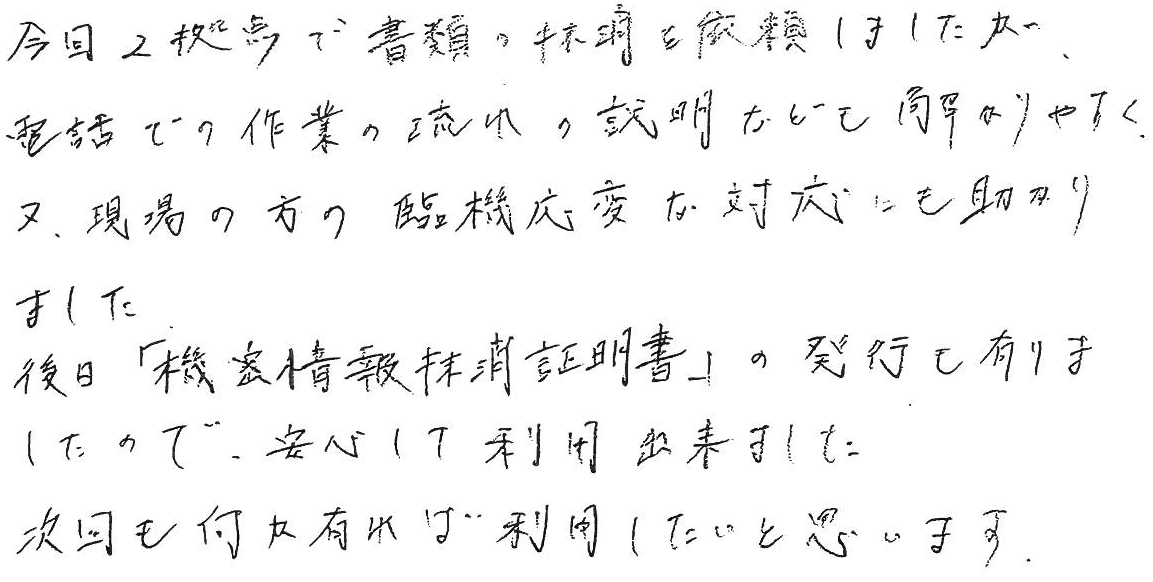 今回2拠点で書類の抹消を依頼しましたが、
電話での作業の流れの説明なども解りやすく、
又、現場の方の臨機応変な対応にも助かり
ました。
後日「機密情報抹消証明書」の発行も有りま
したので、安心して利用出来ました
次回も何か有れば利用したいと思います。